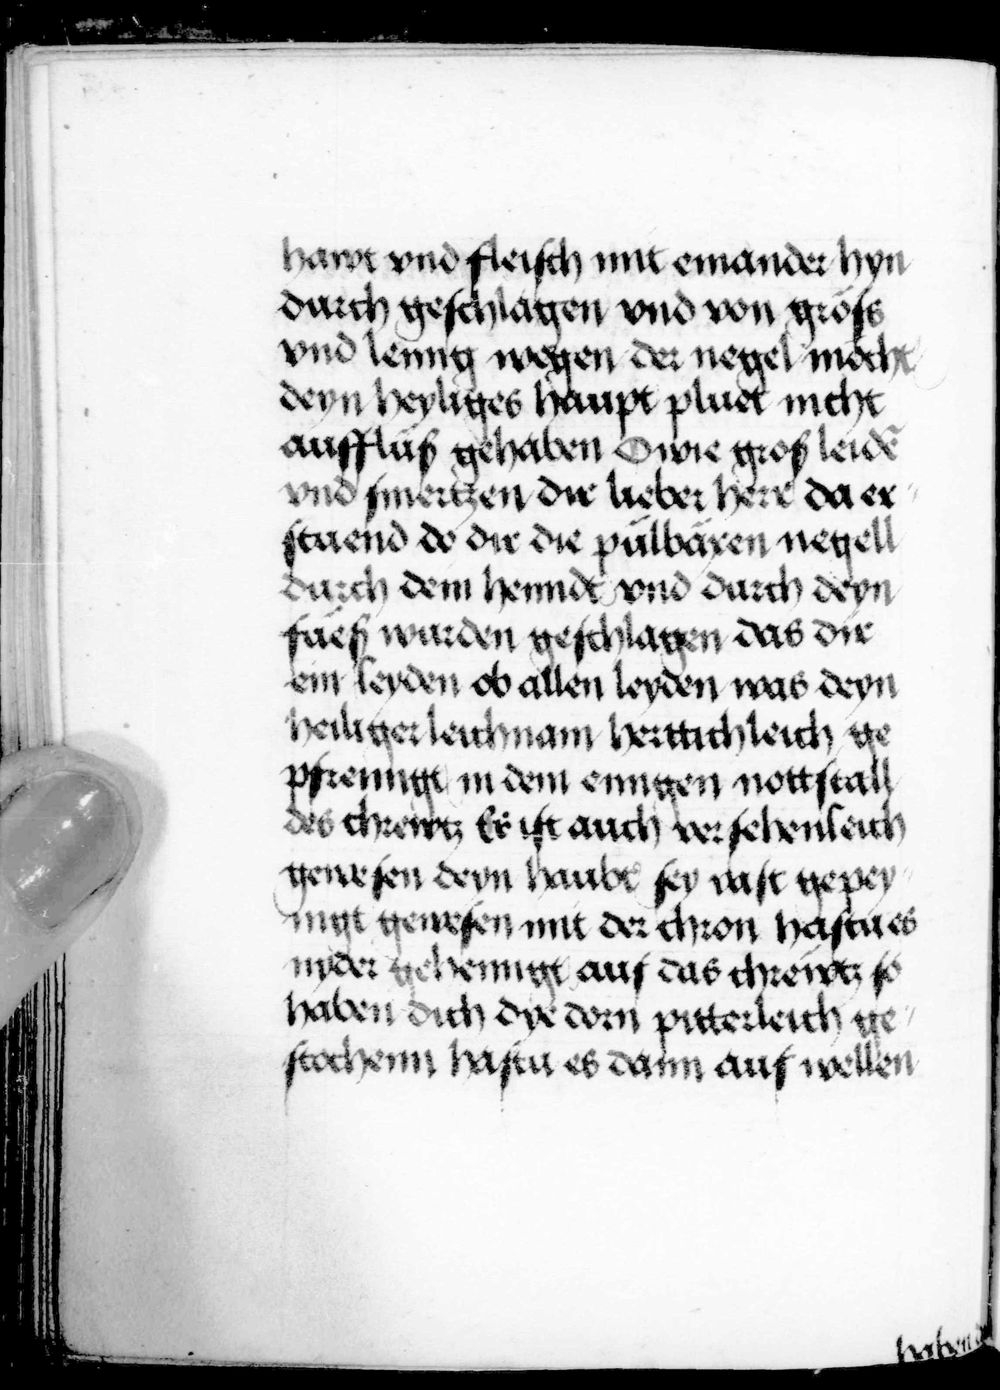 hawt vnd fleisch mit einander hyn
durch geschlagen vnd von gröss
vnd leinng wegen der negel möcht
deyn heyliges haupt pluet nicht
auffluß gehaben O wie groß leidē
vnd smertzen dir lieber herr da er⸗
stuend do dir die pülbäxen negell
durch dein henndt vnd durch deyn
füeß wurden geschlagen das dir
ein leyden ob allen leyden was deyn
heiliger leichnam herttichleich ge
pfrenngt in dem enngen nottstall
des chrewtz Er ist auch versehenleich
gewesen deyn haubt sey vast gepey⸗
nigt gewesen mit der chron hastu es
nyder gehenngt auf das chrewtz so
haben dich dye dorn pitterleich ge⸗
stochenn hastu es dann auf wellen
haben